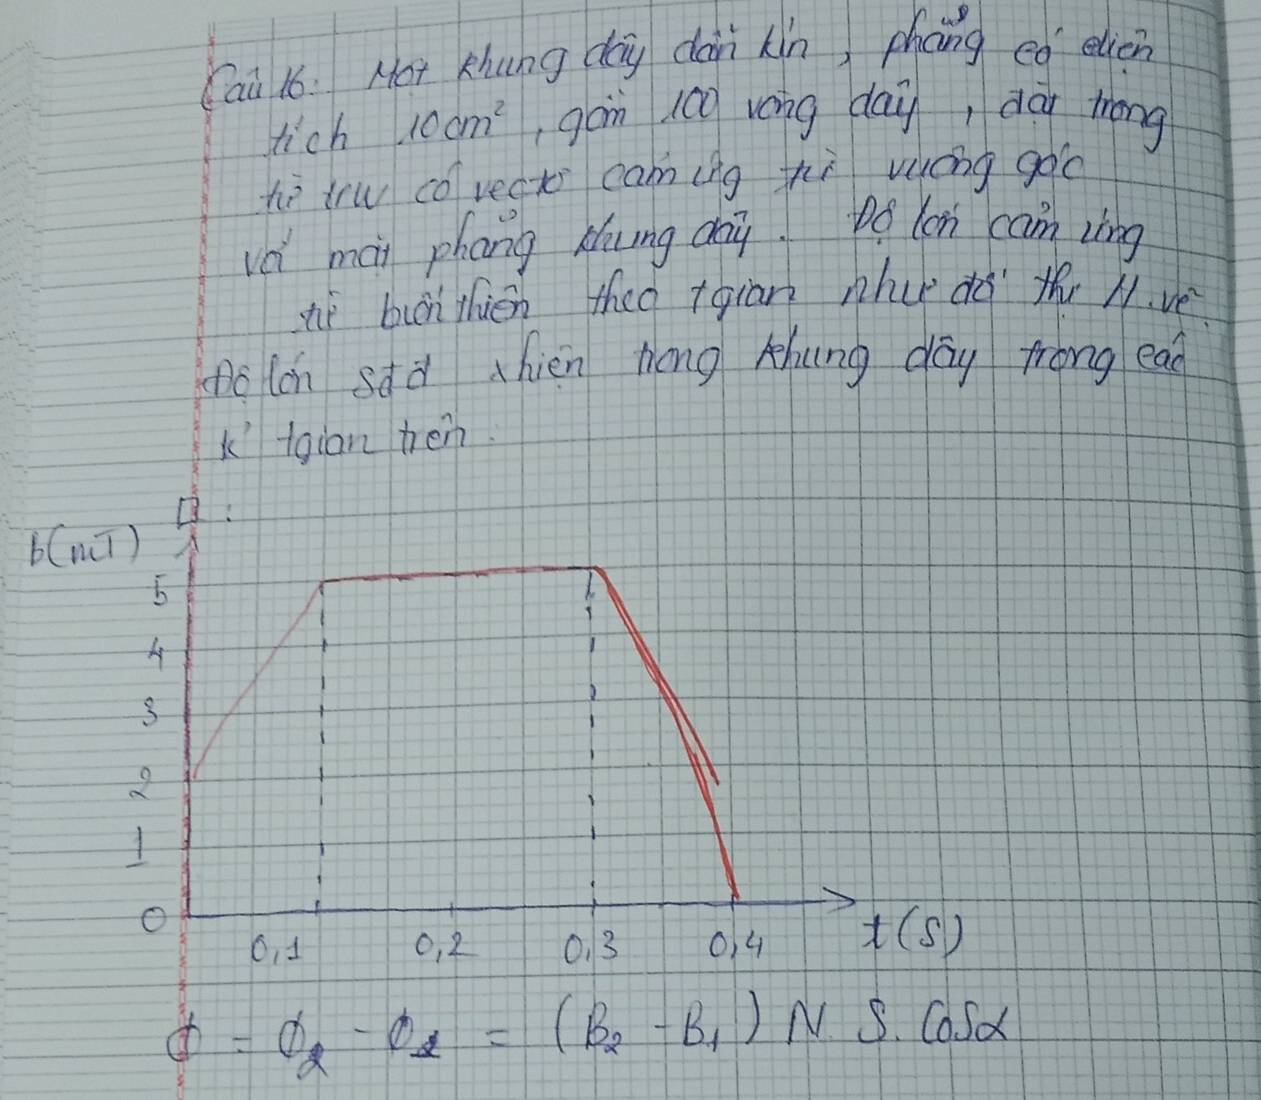 Câu 16: Một khung dây dẫn kín, phẳng có diện
tích 10cm², gồm 100 vòng dây, đặt trong
từ trư có vectơ cảm ứng từ vuông góc
với mặt phẳng khung dây. Độ lớn cảm ứng
từ biến thiên theo tgian như đồ thị H.vẽ.
Độ lớn sđđ xhiện trong khung dây trong các
k' tgian trên.
b(mT)
5
4
3
2
1
0
0,1 0,2 0,3 0,4 t(s)
Φ = Φ₂ - Φ₁ = (B₂ - B₁) N. S. Cosα